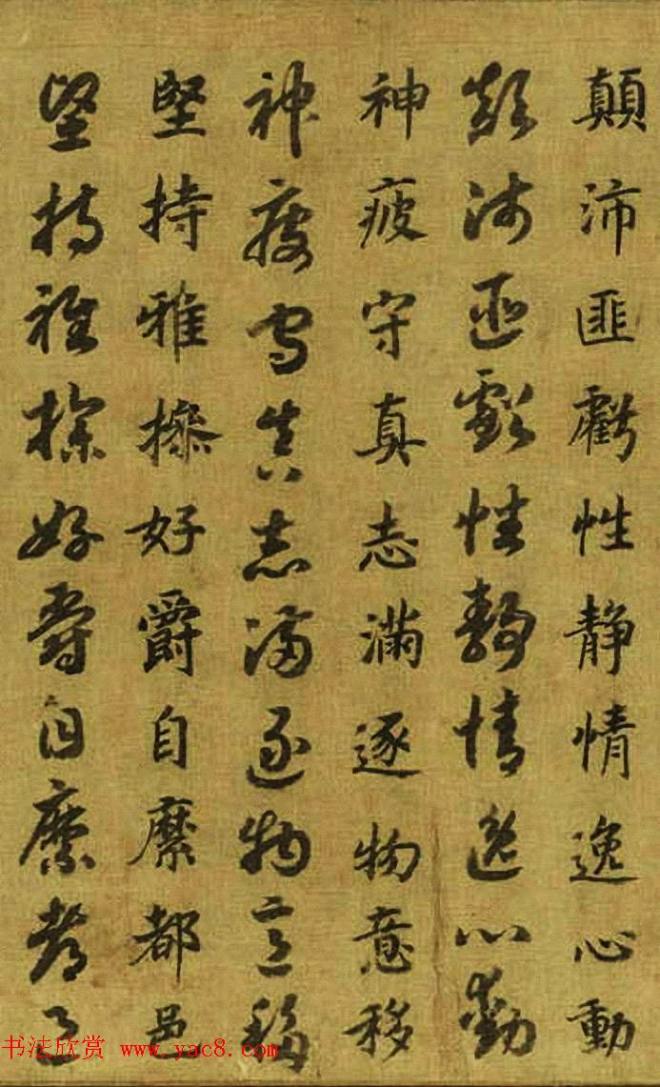 顛沛匪虧性静情逸心動
顛沛匪虧性静情逸心動
神疲守真志滿逐物意移
神疲守真志滿逐物意移
堅持雅操好爵自縻都邑
堅持雅操好爵自縻都邑
书法欣赏 www.yac8.com